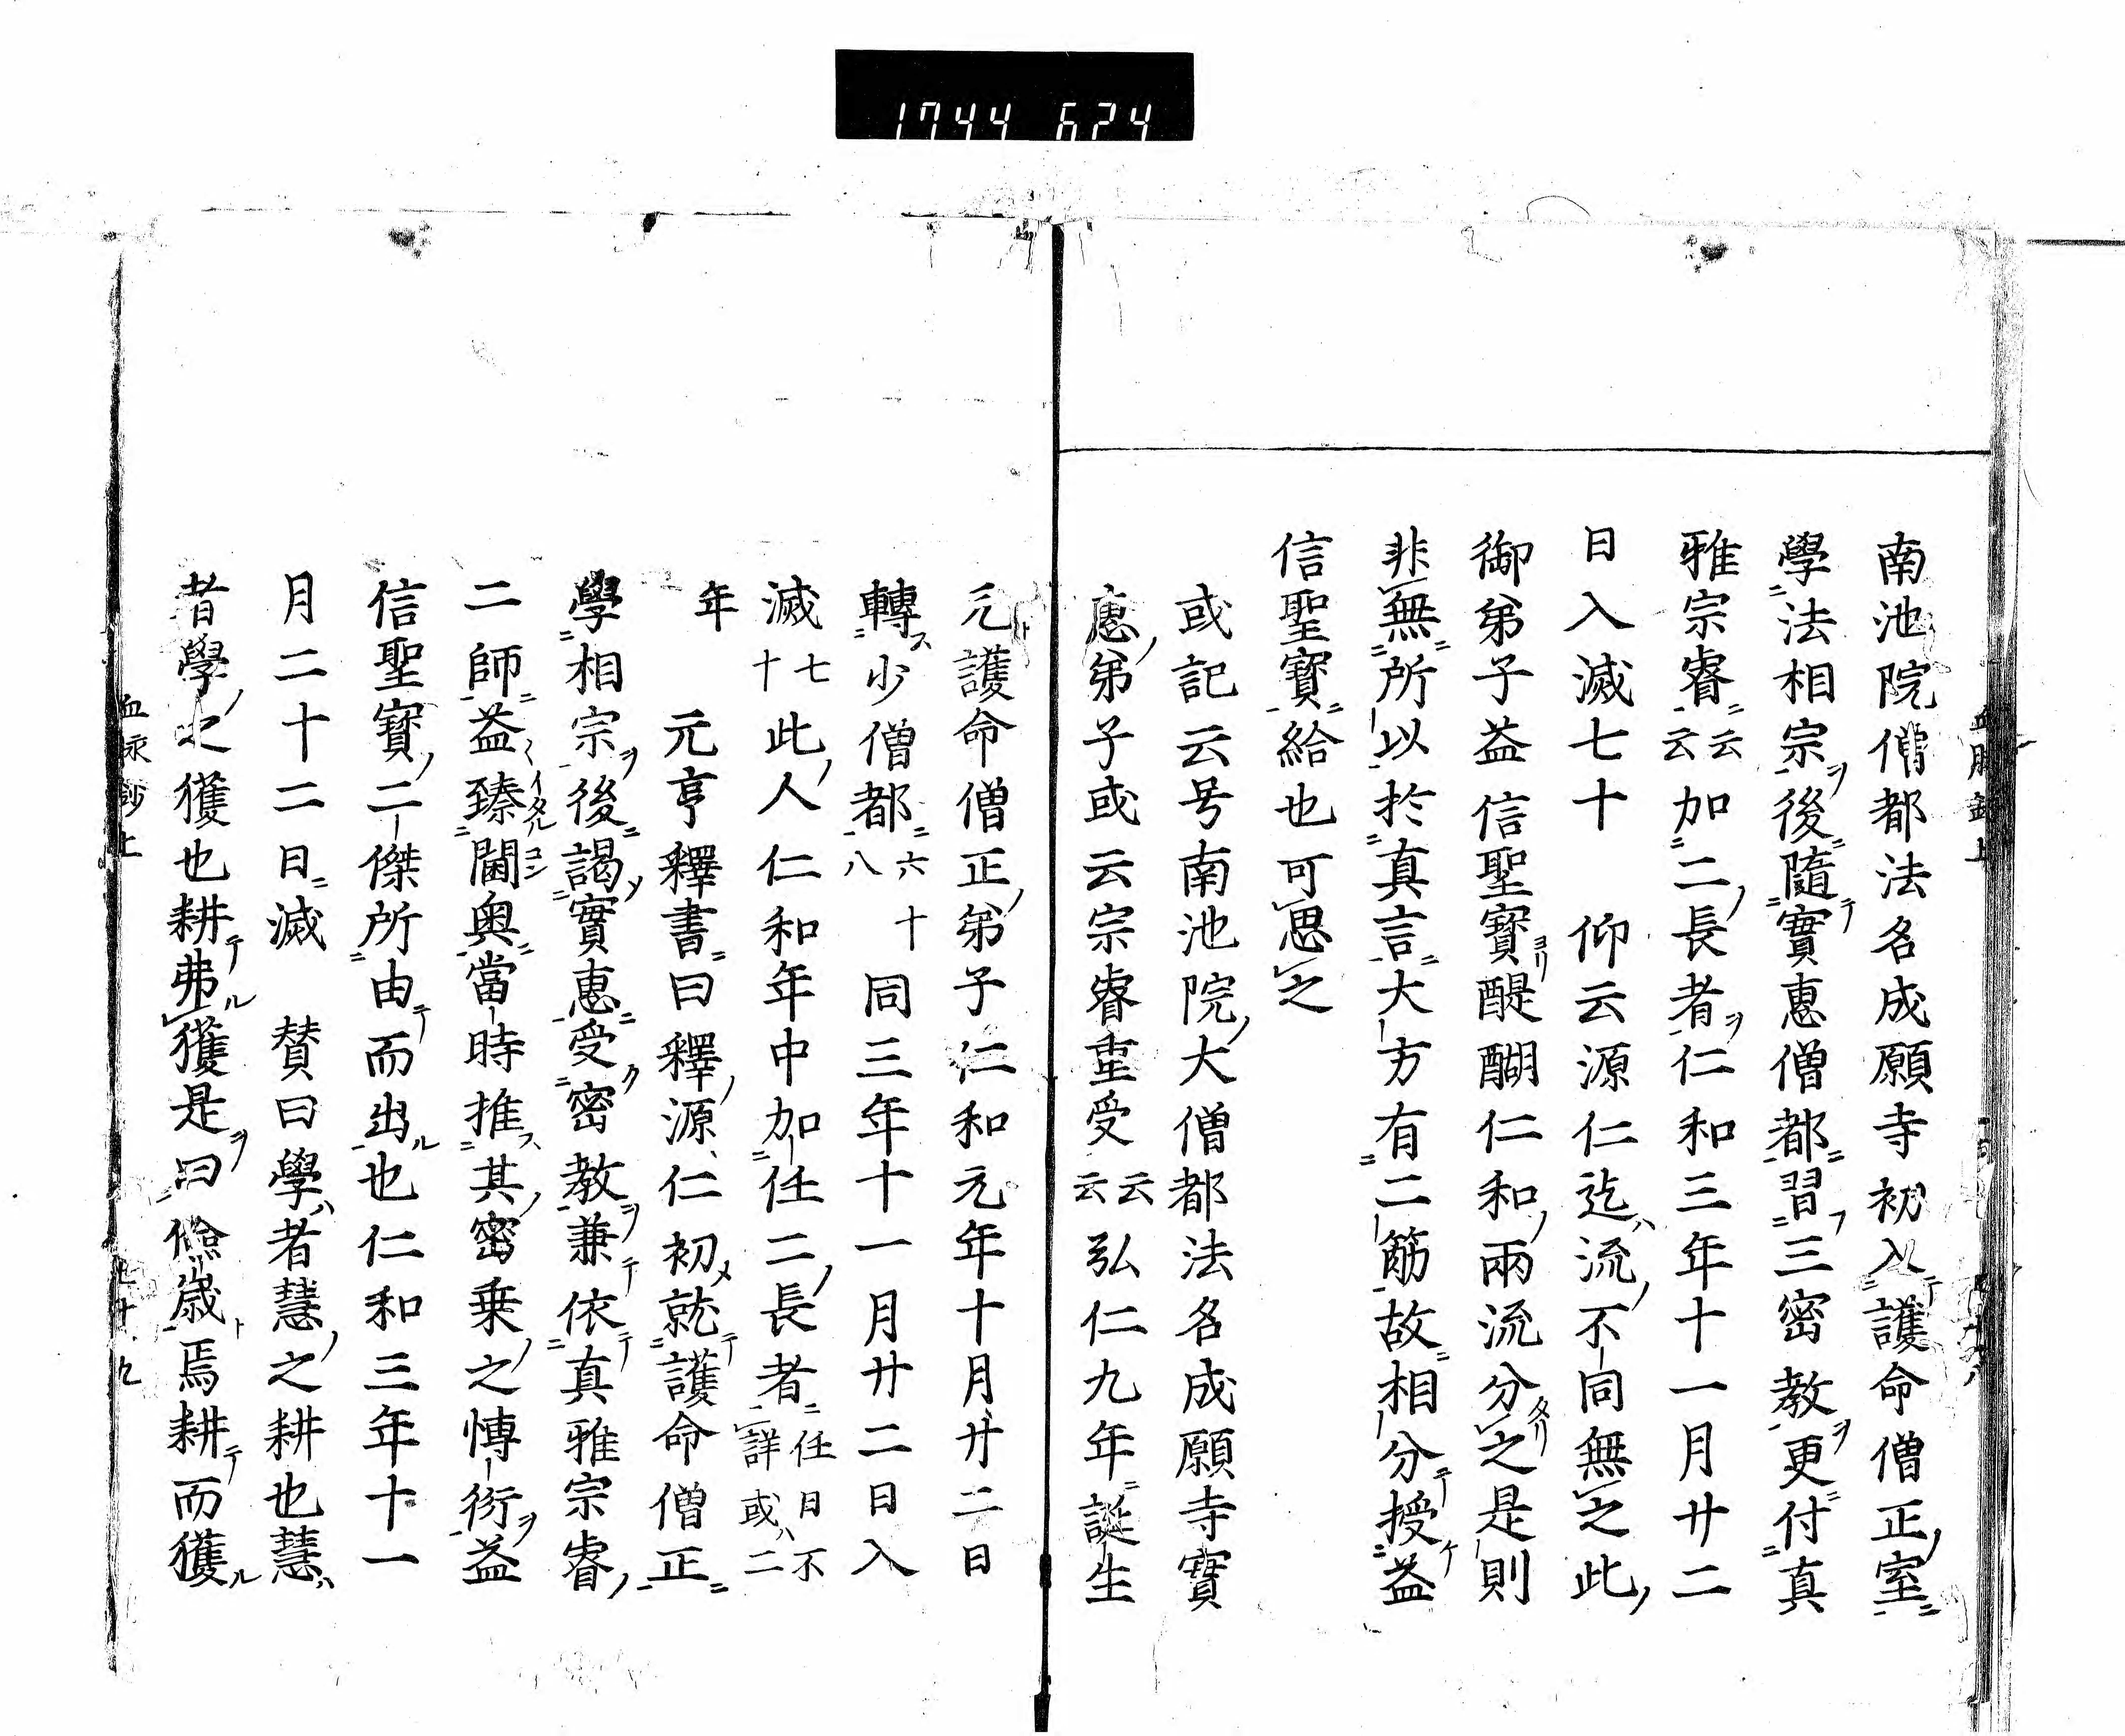 1744 674
南池院僧都法名成願寺初入護命僧正室
學法相宗後隨實惠僧都習三密教更付真
雅宗睿云云加二長者仁和三年十一月廿二
日入滅七十 仰云源仁迄流不同無之此
御弟子益信聖寶醍醐仁和兩流分之是則
非無所以於真言大方有二筋故相分授益
信聖寶給也可思之
或記云号南池院大僧都法名成願寺實
惠弟子或云宗睿重受云云弘仁九年誕生
元護命僧正弟子仁和元年十月廿二日
轉少僧都六十八同三年十一月廿二日入
滅七十此人仁和年中加任二長者任日不詳或二
年 元亨釋書曰釋源仁初就護命僧正
學相宗後謁實惠受密教兼依真雅宗睿
二師益臻閫奥當時推其密乗之博衍益
信聖寶二傑所由而出也仁和三年十一
月二十二日滅 賛曰學者慧之耕也慧
者學之獲也耕弗獲是曰儉歳焉耕而獲